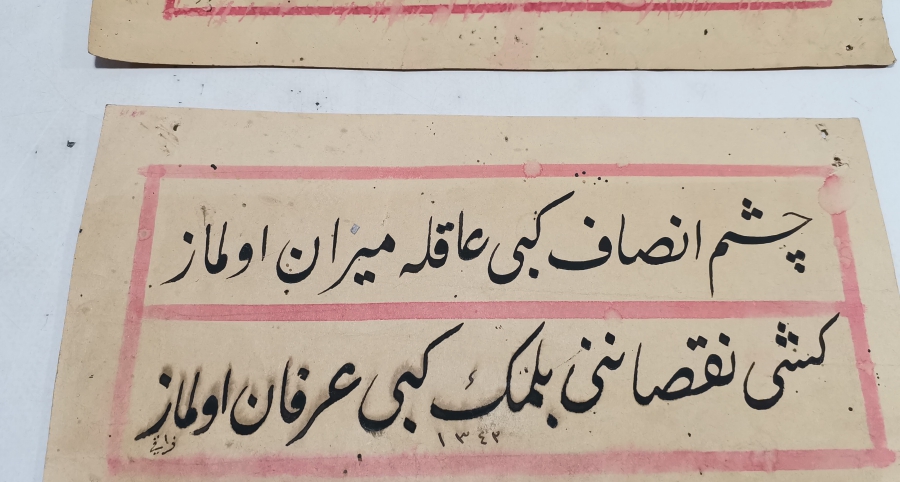 چشم انصاف كبی عاقله میزان اولماز
كشی نقصاننی بلمك كبی عرفان اولماز
١٣٤٢